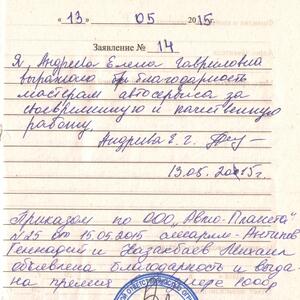 « 13 » 05 2015
Заявление № 14
Я, Андреева Елена Гавриловна
выражаю благодарность
мастерам автосервиса за
своевременную и качественную
работу.
Андреева Е. г.
13.05.2015г.
Приказом по ООО „Авто-Планета"
№25 от 15.05.2015 слесарям Антипов
Геннадий и Казакбаев Михаил
объявлена благодарность и выда-
на премия мере 1000р